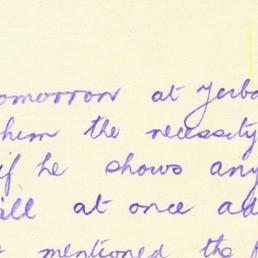 omorrow at Yerba
him the necessity
if he shows any
ill at once ad
mentioned the